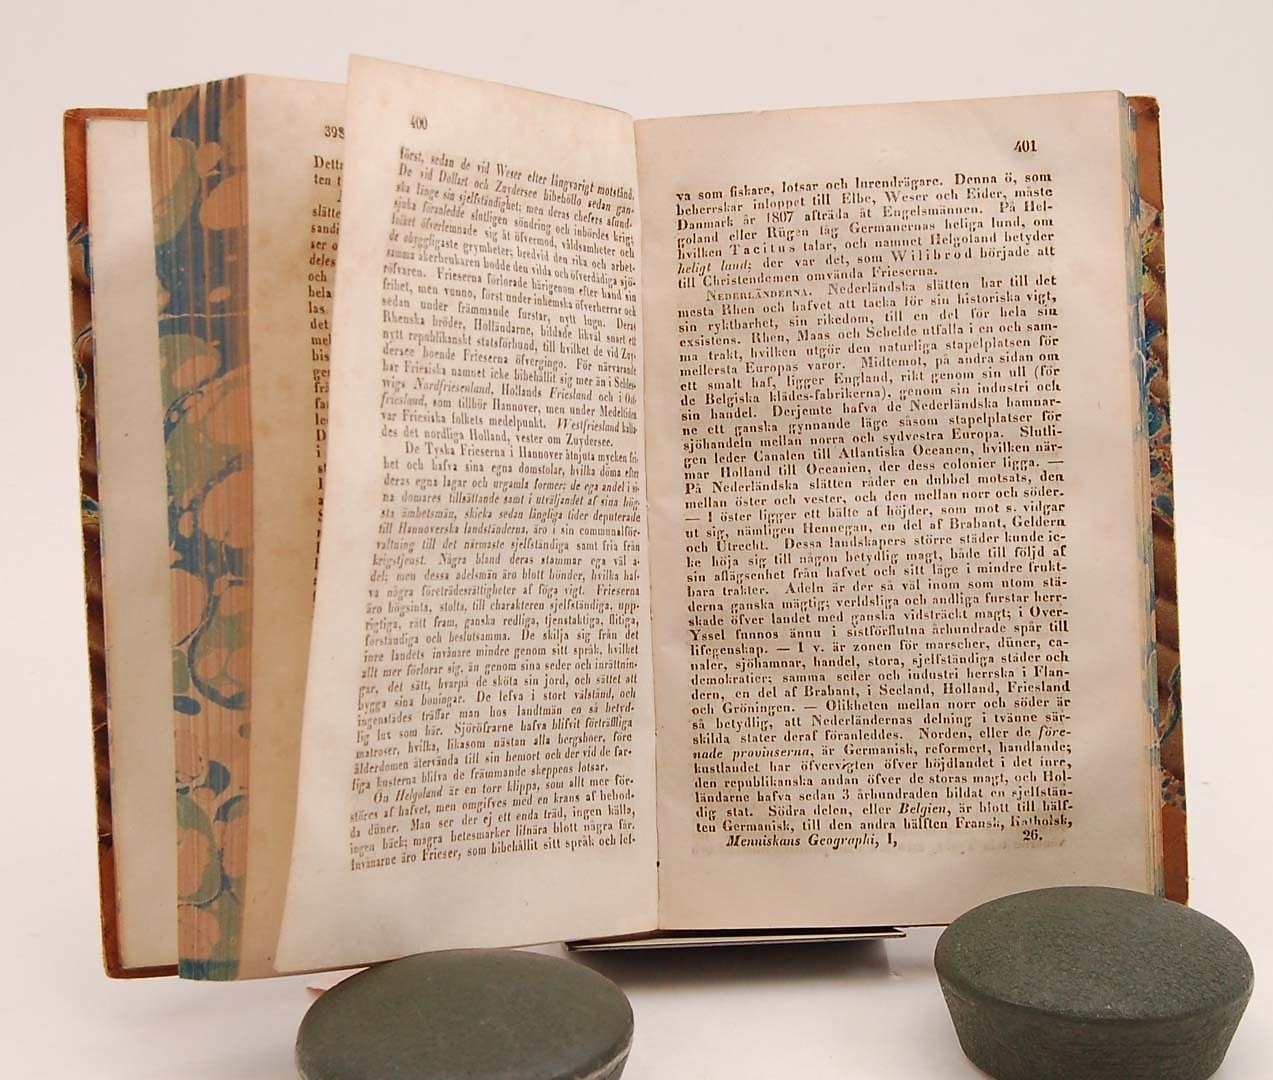 398
Detta
ten t
slätte
sandi
ser o
deles
och
hela
las
det
400
först, sedan de vid Weser efter långvarigt motstånd.
De vid Dollart och Zuydersee bibehöllo sedan gan-
ska länge sin sjelfständighet; men deras chefers afund-
sjuka föranledde slutligen söndring och inbördes krig;
folket öfverlemnade sig åt öfvermod, våldsamheter och
de obyggligaste grymheter; bredvid den rika och arbet-
samma åkerbrukaren bodde den vilda och öfverdådiga sjö-
röfvaren. Frieserna förlorade härigenom efter hand sin
frihet, men vunno, först under inhemska öfverherrar och
sedan under främmande furstar, nytt lugn. Deras
Rhenska bröder, Holländarne, bildade likväl snart ett
nytt republikanskt statsförbund, till hvilket de vid Zuy-
dersee boende Frieserna öfvergingo. För närvarande
har Friesiska namnet icke bibehållit sig mer än i Schles-
wigs Nordfriesenland, Hollands Friesland och i Ost-
friesland, som tillhör Hannover, men under Medeltiden
var Friesiska folkets medelpunkt. Westfriesland kalla-
des det nordliga Holland, vester om Zuydersee.
De Tyska Frieserna i Hannover åtnjuta mycken fri-
het och hafva sina egna domstolar, hvilka döma efter
deras egna lagar och urgamla former; de ega andel i si-
na domares tillsättande samt i utväljandet af sina hög-
sta ämbetsmän, skicka sedan långliga tider deputerade
till Hannoverska landständerna, äro i sin communalför-
valtning till det närmaste sjelfständiga samt fria från
krigstjenst. Några bland deras stammar ega väl a-
del; men dessa adelsmän äro blott bönder, hvilka haf-
va några företrädesrättigheter af föga vigt. Frieserna
äro högsinta, stolta, till charakteren sjelfständiga, upp-
rigtiga, rätt fram, ganska redliga, tjenstaktiga, flitiga,
förståndiga och beslutsamma. De skilja sig från det
inre landets invånare mindre genom sitt språk, hvilket
allt mer förlorar sig, än genom sina seder och inrättnin-
gar, det sätt, hvarpå de sköta sin jord, och sättet att
bygga sina boningar. De lefva i stort välstånd, och
ingenstädes träffar man hos landtmän en så betyd-
lig lux som här. Sjöröfrarne hafva blifvit förträffliga
matroser, hvilka, likasom nästan alla bergsboer, före
ålderdomen återvända till sin hemort och der vid de far-
liga kusterna blifva de främmande skeppens lotsar.
Ön Helgoland är en torr klippa, som allt mer för-
störes af hafvet, men omgifves med en krans af bebod-
da düner. Man ser der ej ett enda träd, ingen källa,
ingen bäck; magra betesmarker lifnära blott några får.
Invånarne äro Frieser, som bibehållit sitt språk och lef-
401
va som fiskare, lotsar och lurendrägare. Denna ö, som
beherrskar inloppet till Elbe, Weser och Eider, måste
Danmark år 1807 afträda åt Engelsmännen. På Hel-
goland eller Rügen låg Germanernas heliga lund, om
hvilken Tacitus talar, och namnet Helgoland betyder
heligt land; der var det, som Wilibrod började att
till Christendomen omvända Frieserna.
NEDERLÄNDERNA. Nederländska slätten har till det
mesta Rhen och hafvet att tacka för sin historiska vigt,
sin ryktbarhet, sin rikedom, till en del för hela sin
exsistens. Rhen, Maas och Schelde utfalla i en och sam-
ma trakt, hvilken utgör den naturliga stapelplatsen för
mellersta Europas varor. Midtemot, på andra sidan om
ett smalt haf, ligger England, rikt genom sin ull (för
de Belgiska klädes-fabrikerna), genom sin industri och
sin handel. Derjemte hafva de Nederländska hamnar-
ne ett ganska gynnande läge såsom stapelplatser för
sjöhandeln mellan norra och sydvestra Europa. Slutli-
gen leder Canalen till Atlantiska Oceanen, hvilken när-
mar Holland till Oceanien, der dess colonier ligga. —
På Nederländska slätten råder en dubbel motsats, den
mellan öster och vester, och den mellan norr och söder.
— I öster ligger ett bälte af höjder, som mot s. vidgar
ut sig, nämligen Hennegau, en del af Brabant, Geldern
och Utrecht. Dessa landskapers större städer kunde ic-
ke höja sig till någon betydlig magt, både till följd af
sin aflägsenhet från hafvet och sitt läge i mindre frukt-
bara trakter. Adeln är der så väl inom som utom stä-
derna ganska mägtig; verldsliga och andliga furstar herr-
skade öfver landet med ganska vidsträckt magt; i Over-
Yssel funnos ännu i sistförflutna århundrade spår till
lifegenskap. — I v. är zonen för marscher, düner, ca-
naler, sjöhamnar, handel, stora, sjelfständiga städer och
demokratier; samma seder och industri herrska i Flan-
dern, en del af Brabant, i Seeland, Holland, Friesland
och Gröningen. — Olikheten mellan norr och söder är
så betydlig, att Nederländernas delning i tvänne sär-
skilda stater deraf föranleddes. Norden, eller de före-
nade provinserna, är Germanisk, reformert, handlande;
kustlandet har öfvervigten öfver höjdlandet i det inre,
den republikanska andan öfver de storas magt, och Hol-
ländarne hafva sedan 3 århundraden bildat en sjelfstän-
dig stat. Södra delen, eller Belgien, är blott till hälf-
ten Germanisk, till den andra hälften Fransk, Katholsk,
Menniskans Geographi, I, 26.